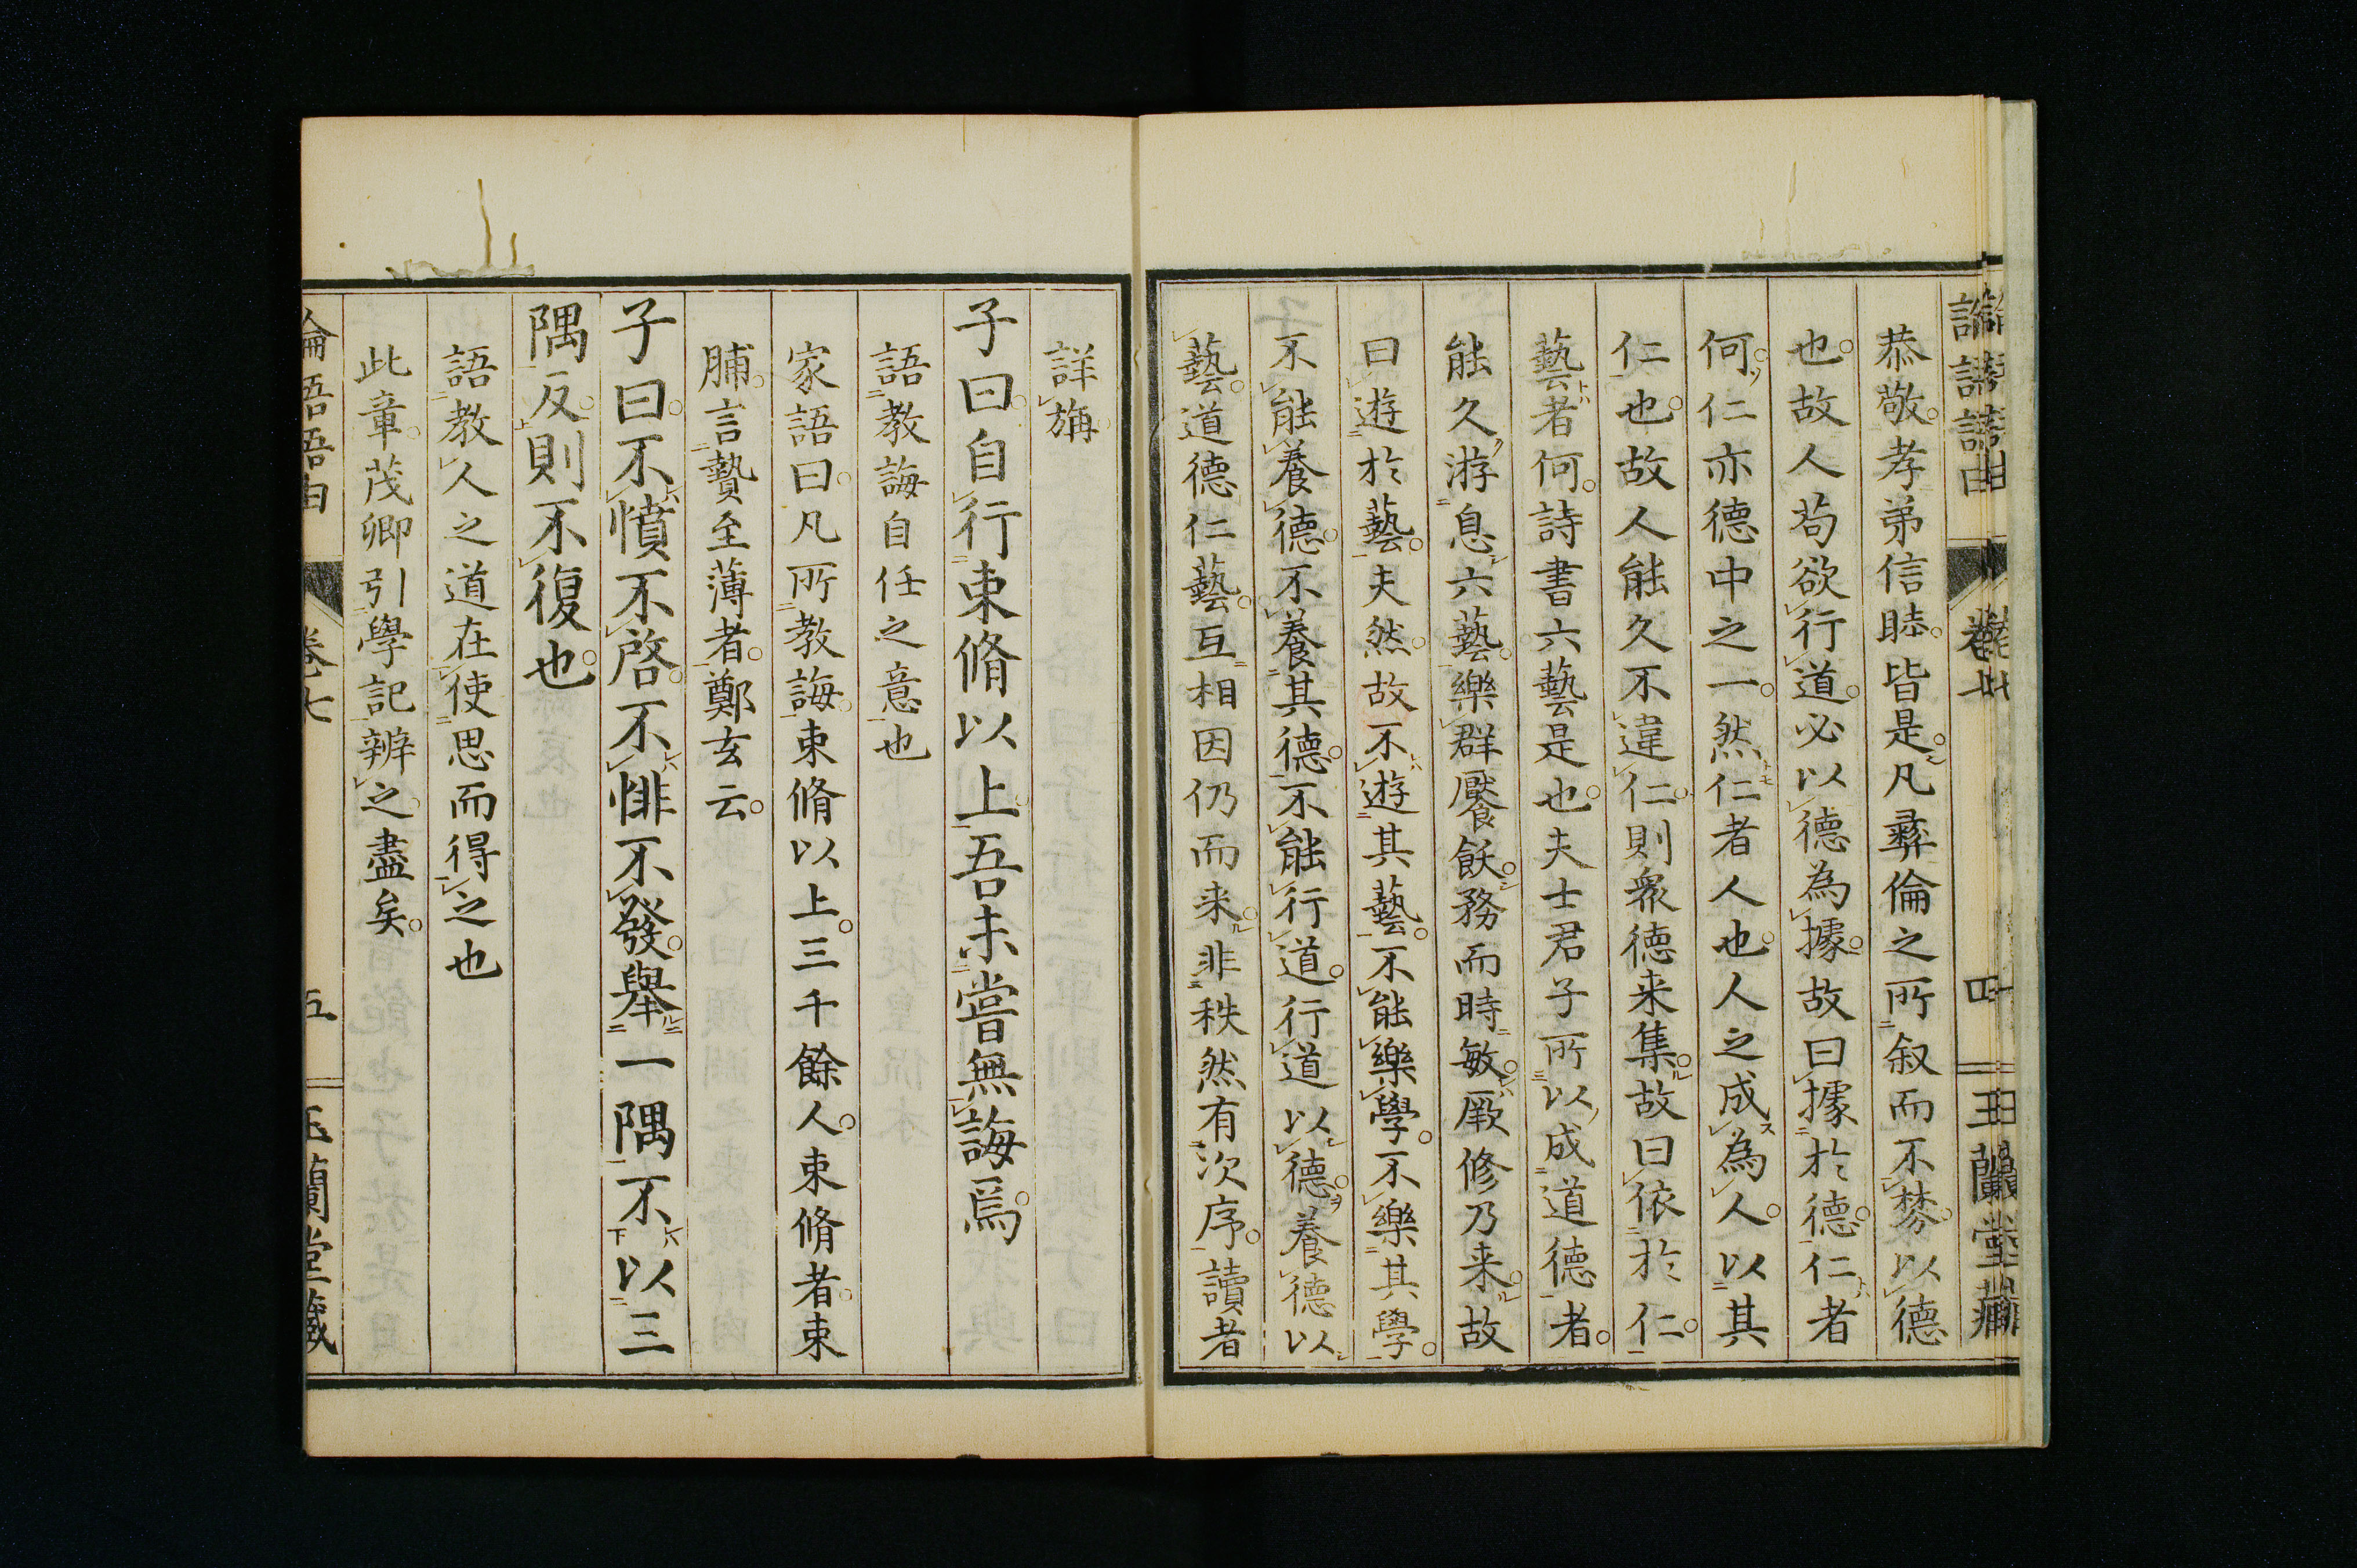 恭敬孝弟信睦皆是凡彝倫之所叙而不棼以德
也故人苟欲行道必以德為據故曰據於德仁者
何仁亦德中之一然仁者人也人之成為人以其
仁也故人能久不違仁則衆德来集故曰依於仁
藝者何詩書六藝是也夫士君子所以成道德者
能久游息六藝樂群饜飫務而時敏厥修乃来故
曰遊於藝夫然故不遊其藝不能樂學不樂其學
不能養德不養其德不能行道行道以德養德以
藝道德仁藝互相因仍而来非秩然有次序讀者
詳旃
子曰自行束脩以上吾未嘗無誨焉
語教誨自任之意也
家語曰凡所教誨束脩以上三千餘人束脩者束
脯言贄至薄者鄭玄云
子曰不憤不啓不悱不發舉一隅不以三
隅反則不復也
語教人之道在使思而得之也
此章茂卿引學記辨之盡矣
論語語由 卷七 五 玉蘭堂藏